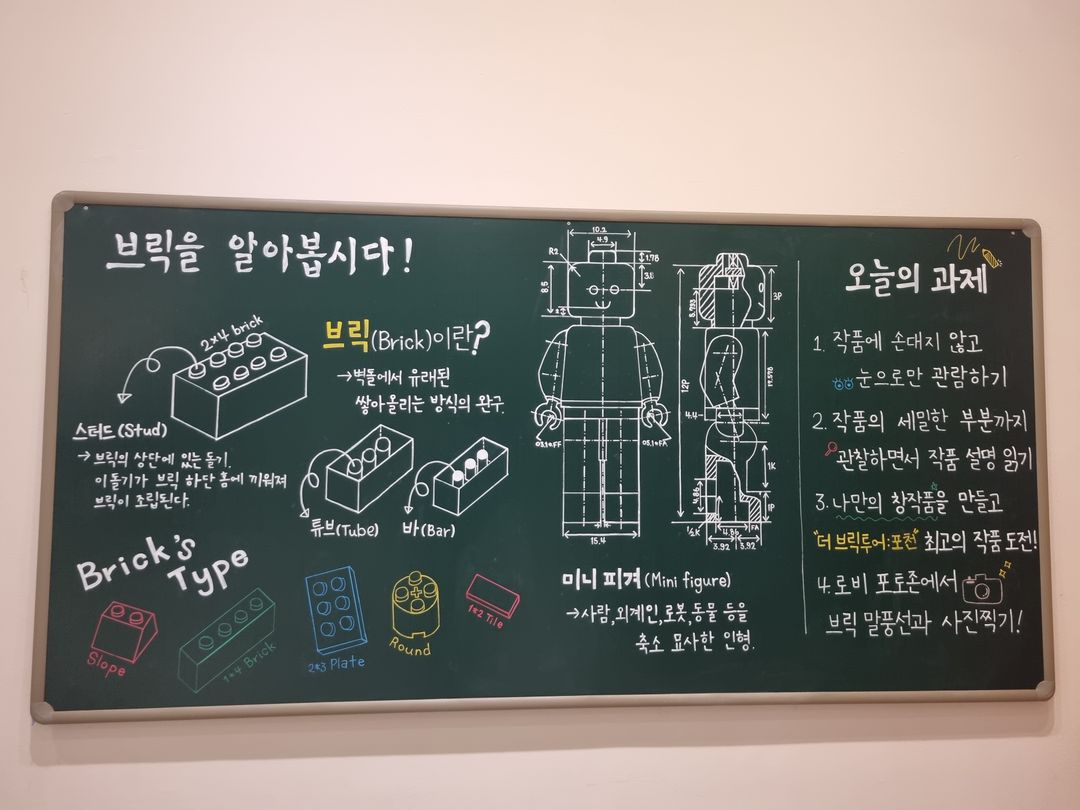 브릭을 알아봅시다!
2×4 brick
스터드(Stud)
→ 브릭의 상단에 있는 돌기.
이돌기가 브릭 하단 홈에 끼워져
브릭이 조립된다.
브릭(Brick)이란?
→벽돌에서 유래된
쌓아올리는 방식의 완구.
튜브(Tube)
바(Bar)
Brick's
Type
Slope
1*4 Brick
2*3 Plate
Round
1*2 Tile
10.2
4.9
R2
1.78
8.5
15.4
3P
12P
4.4
1K
1P
4.86
4.86
½K
FA
3.92
3.92
미니 피겨(Mini figure)
→사람,외계인,로봇,동물 등을
축소 묘사한 인형.
오늘의 과제
1. 작품에 손대지 않고
눈으로만 관람하기
2. 작품의 세밀한 부분까지
관찰하면서 작품 설명 읽기
3. 나만의 창작품을 만들고
"더 브릭투어:포천" 최고의 작품 도전!
4. 로비 포토존에서
브릭 말풍선과 사진찍기!